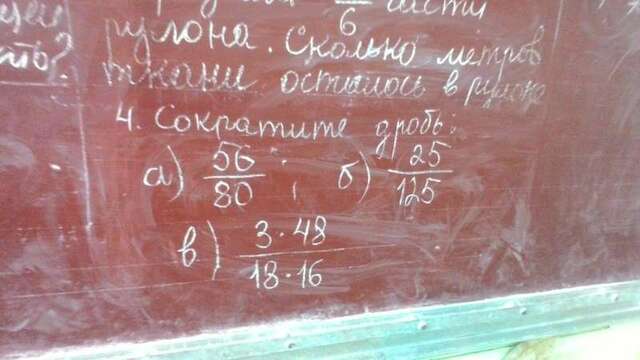 6 части
рулона. Сколько метров
ть? ткани осталось в рулоне
4. Сократите дробь:
а) 56/80 ; б) 25/125
в) 3·48/18·16